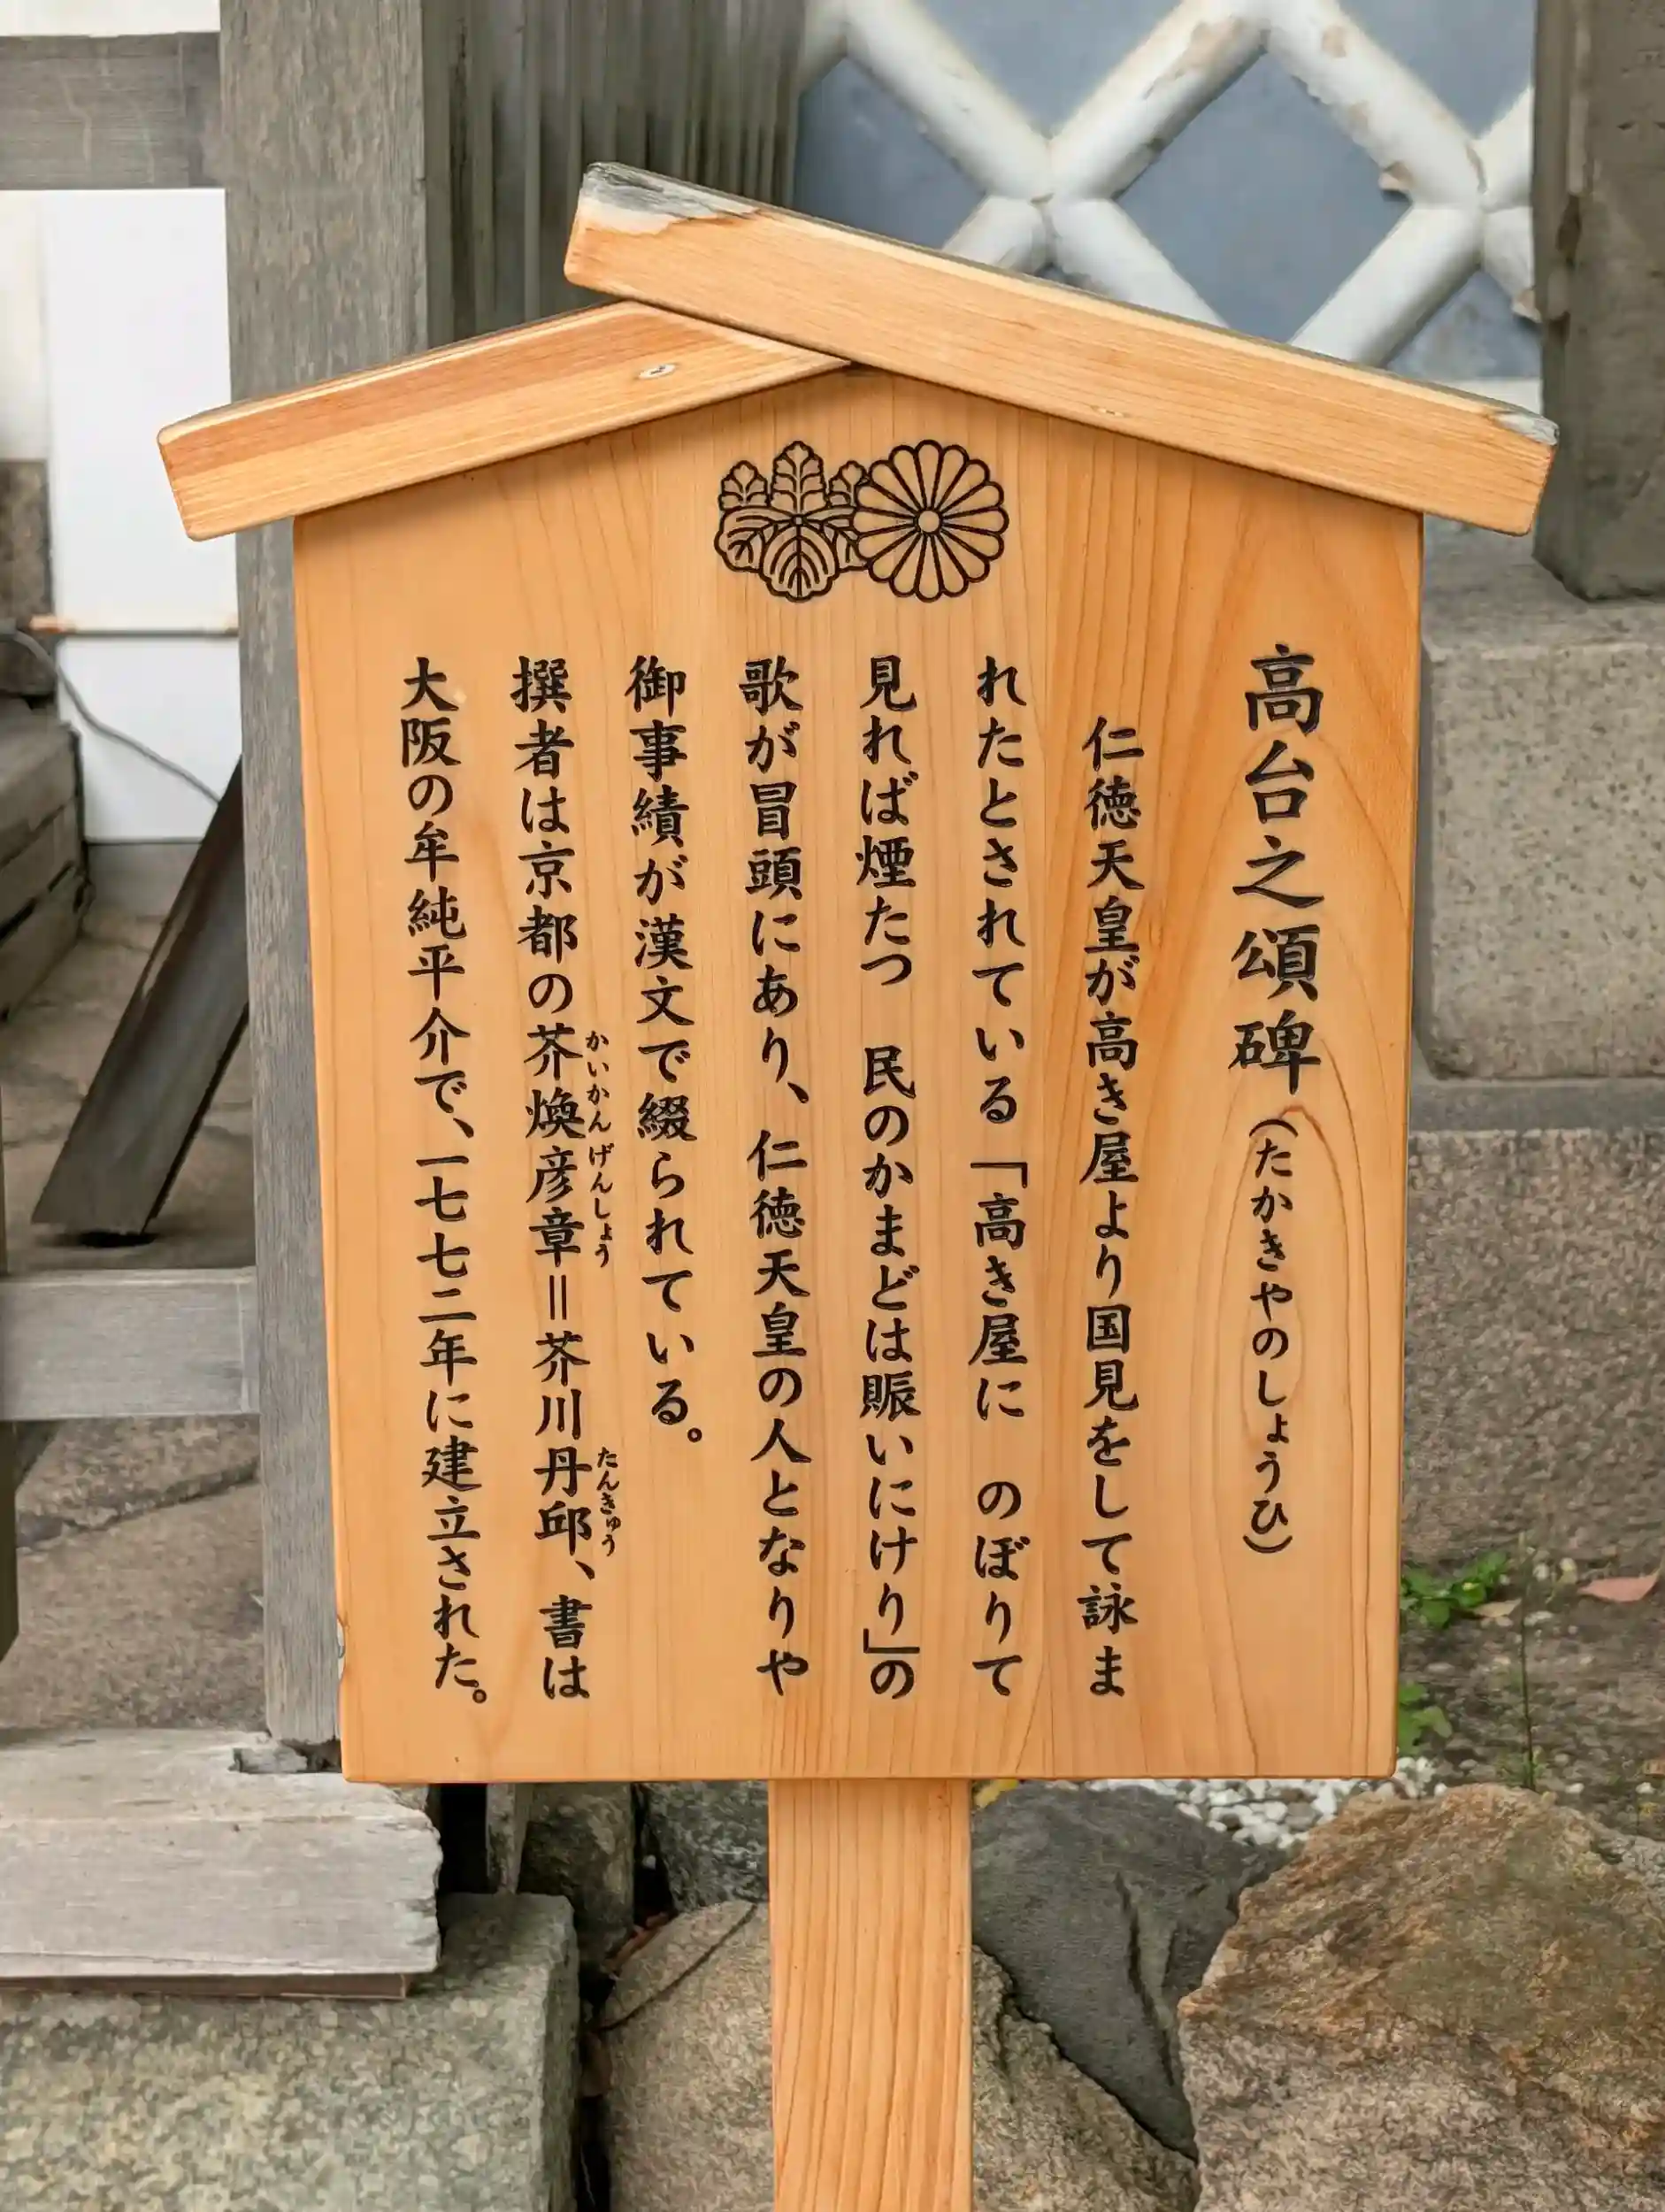 高台之頌碑（たかきやのしょうひ）
仁徳天皇が高き屋より国見をして詠ま
れたとされている「高き屋に　のぼりて
見れば煙たつ　民のかまどは賑いにけり」の
歌が冒頭にあり、仁徳天皇の人となりや
御事績が漢文で綴られている。
撰者は京都の芥煥彦章＝芥川丹邱、書は
かいかんげんしょう
たんきゅう
大阪の牟純平介で、一七七二年に建立された。